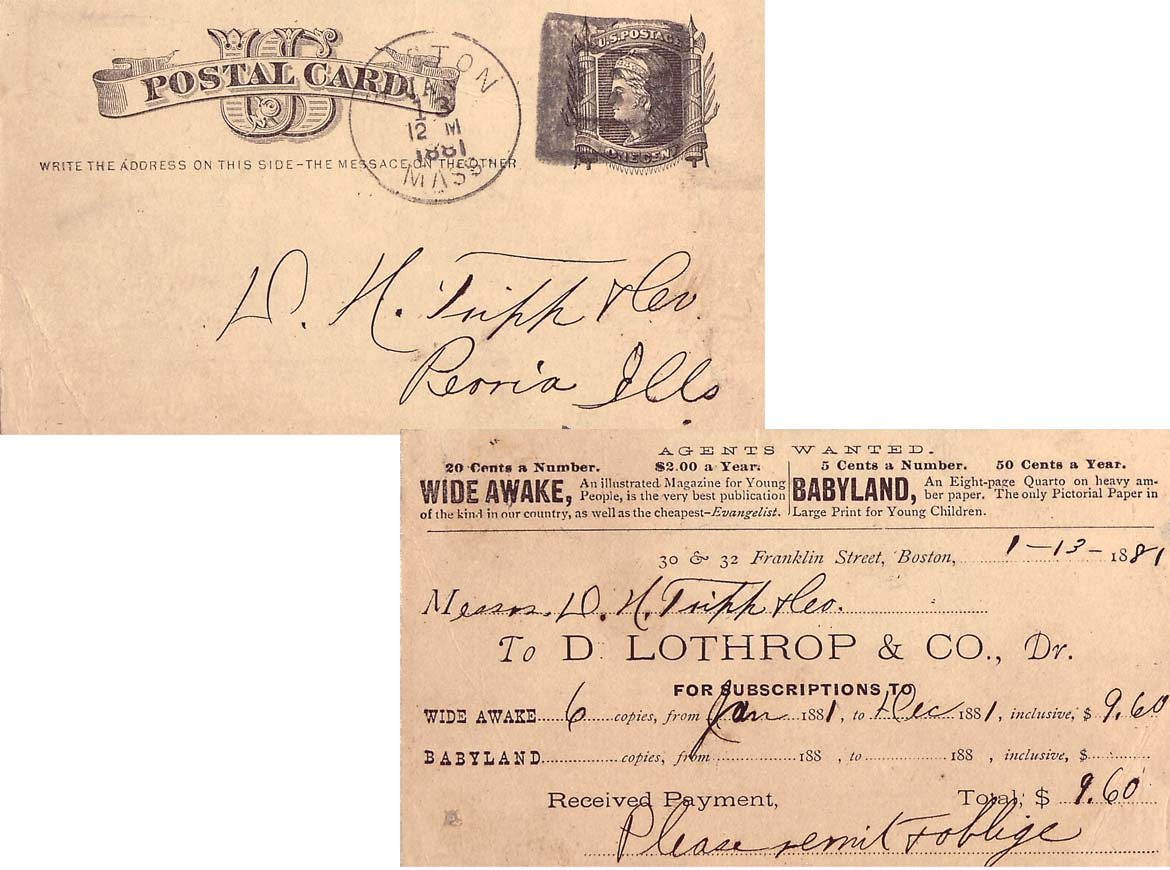 POSTAL CARD
U.S. POSTAGE
ONE CENT
WRITE THE ADDRESS ON THIS SIDE-THE MESSAGE ON THE OTHER
STON
JAN
13
12 M
1881
MASS
D. H. Tripp & Co.
Peoria Ills
AGENTS WANTED.
20 Cents a Number. $2.00 a Year.
WIDE AWAKE, An illustrated Magazine for Young
People, is the very best publication
of the kind in our country, as well as the cheapest-Evangelist.
5 Cents a Number. 50 Cents a Year.
BABYLAND, An Eight-page Quarto on heavy am-
ber paper. The only Pictorial Paper in
Large Print for Young Children.
30 & 32 Franklin Street, Boston, 1-13-1881
Messrs. D. H. Tripp & Co.
To D. LOTHROP & CO., Dr.
FOR SUBSCRIPTIONS TO
WIDE AWAKE 6 copies, from Jan 1881, to Dec 1881, inclusive, $ 9.60
BABYLAND copies, from 188 , to 188 , inclusive, $
Received Payment, Total, $ 9.60
Please remit & oblige